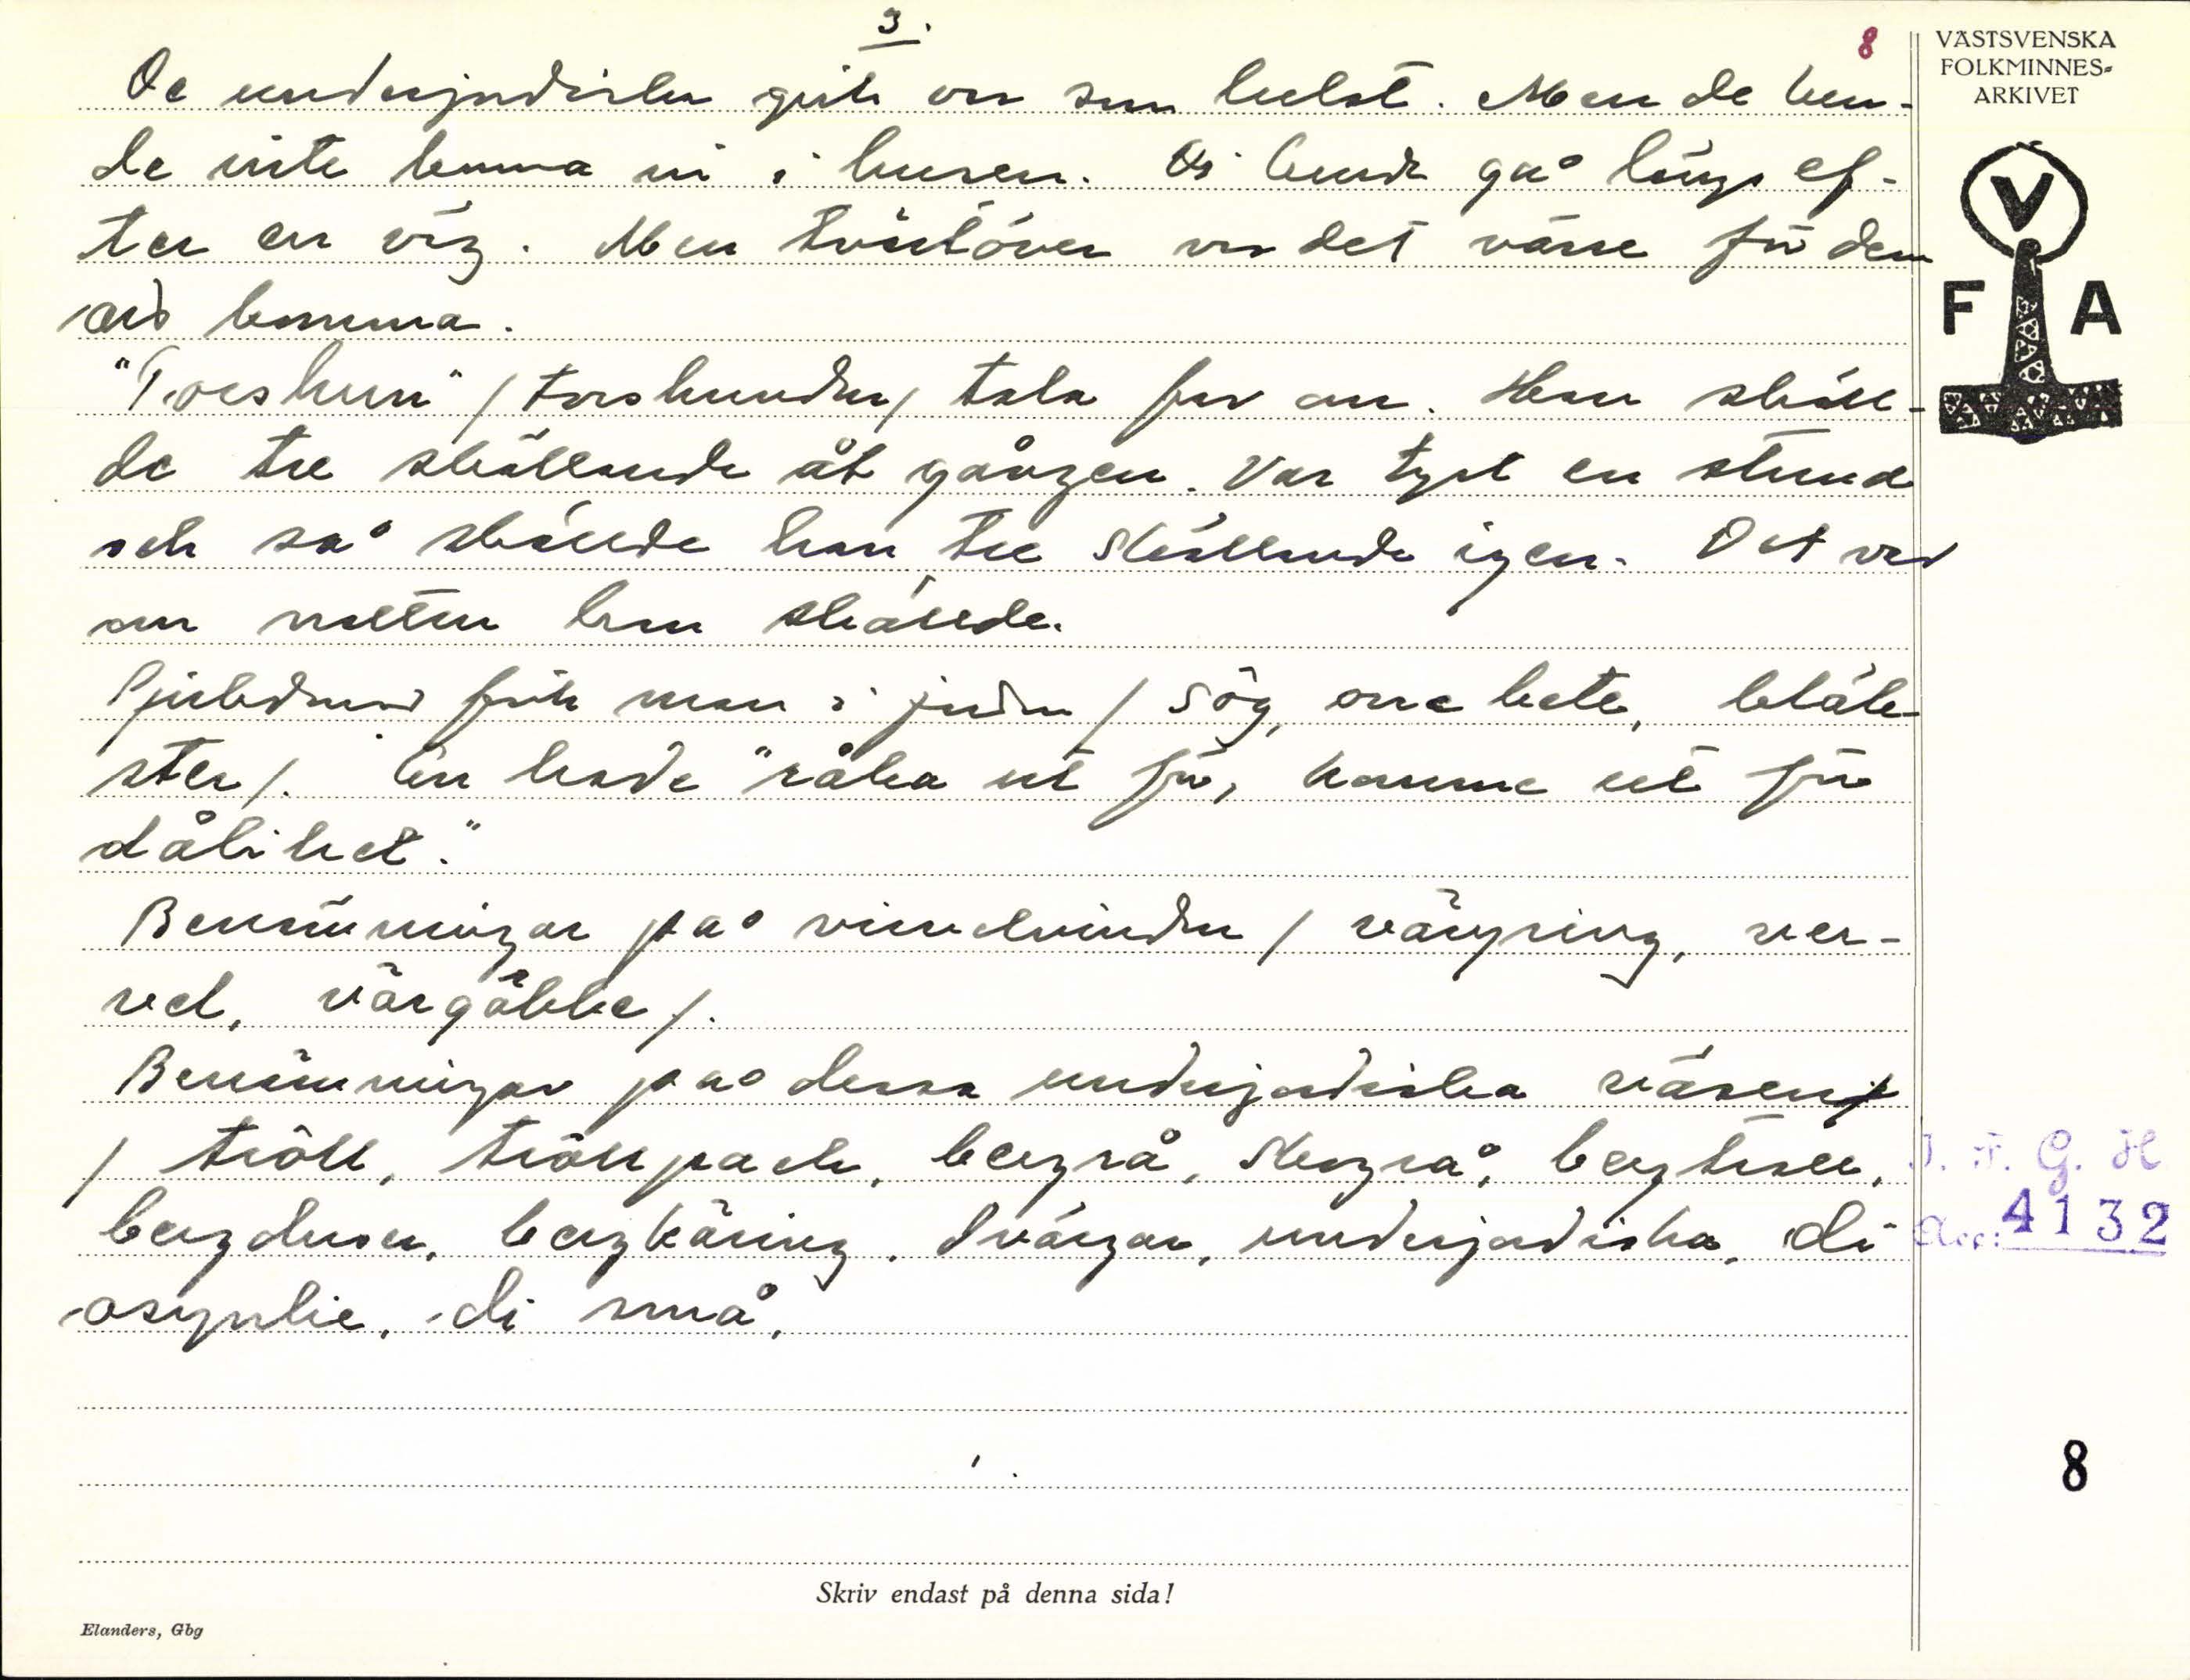 3.
8
De underjordiska gick var som helst. Men de kun-
de inte komma in i husen. De kunde gå längs ef-
ter en väg. Men tvärtöver var det värre för dem
att komma.
"Torshun" / torshunden / tala far om. Han skäll-
de tre skällande åt gången. Var tyst en stund
och så skällde han tre skällande igen. Det var
om natten han skällde.
Sjukdomar fick man i jorden / sög, onc bete, 
ster /. En hade "råka ut för, komme ut för
dålihet."
Benämningar på virvelvinden / väuping, ver-
vel, värgöbbe /.
Benämningar på dessa underjordiska väsen
/ tröll, tröllpack, bergrå, skogrå, bergtroll,
bergdusa, bergkäring, dvärgar, underjordiska, di
osynlie, di små,
VÄSTSVENSKA
FOLKMINNES-
ARKIVET
V
F A
I. F. G. H
Acc: 4132
8
Skriv endast på denna sida!
Elanders, Gbg